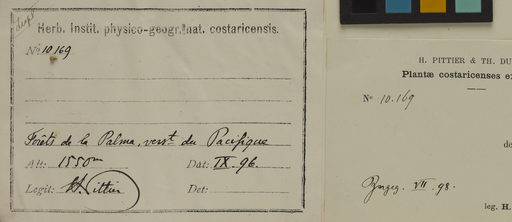 dupl
Herb. Instit. physico-geogr. nat. costaricensis.
No. 10169
Forêts de la Palma, verst du Pacifique
Alt: 1550m Dat: IX. 96.
Legit: H. Pittier Det:
H. PITTIER & TH. DU
Plantæ costaricenses e
No 10.169
de
VII. 98.
leg. H.